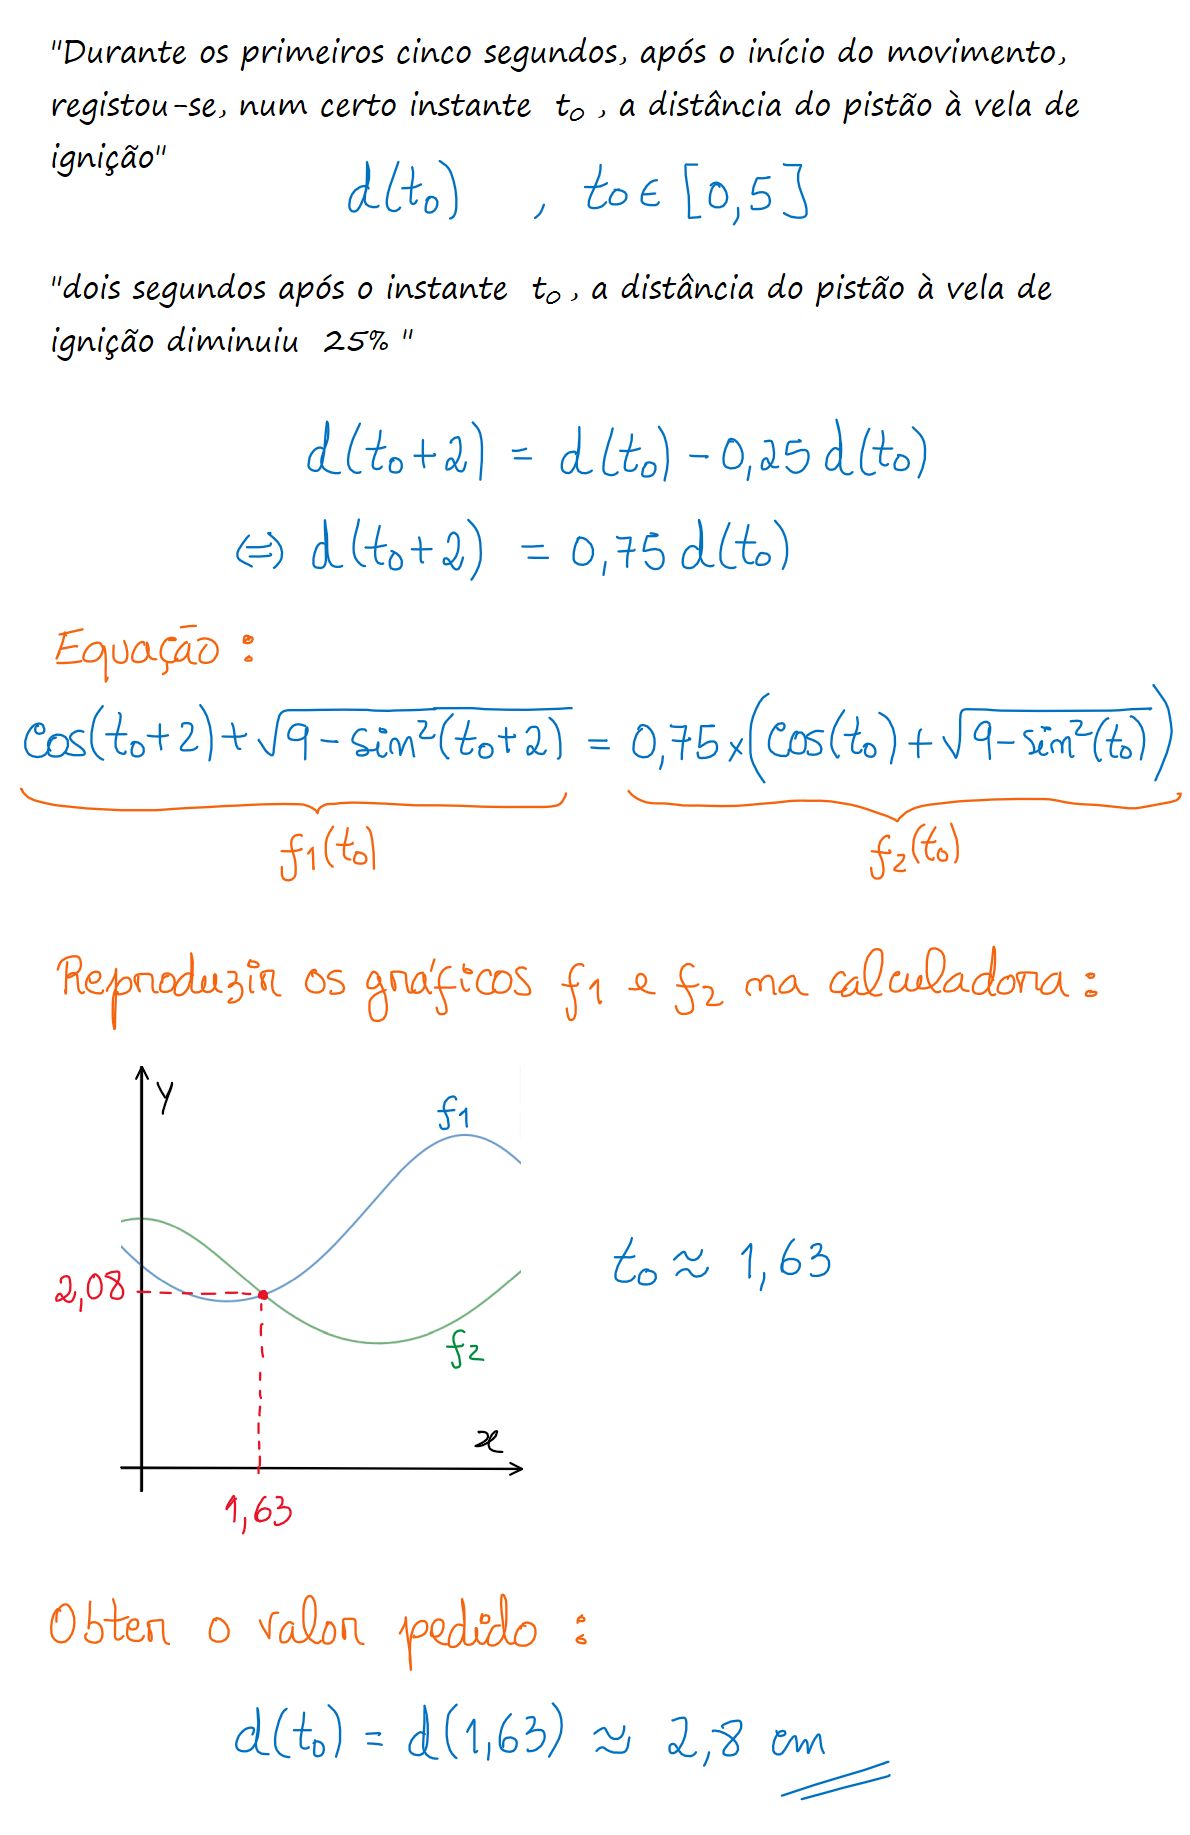 "Durante os primeiros cinco segundos, após o início do movimento,
registou-se, num certo instante t₀, a distância do pistão à vela de
ignição"
d(t₀) , t₀ ∈ [0,5]
"dois segundos após o instante t₀, a distância do pistão à vela de
ignição diminuiu 25% "
d(t₀+2) = d(t₀) - 0,25 d(t₀)
⇔ d(t₀+2) = 0,75 d(t₀)
Equação :
cos(t₀+2) + √(9 - sin²(t₀+2)) = 0,75 × (cos(t₀) + √(9 - sin²(t₀)))
f1(t₀) f2(t₀)
Reproduzir os gráficos f1 e f2 na calculadora :
y
f1
2,08
t₀ ≈ 1,63
f2
x
1,63
Obter o valor pedido :
d(t₀) = d(1,63) ≈ 2,8 cm